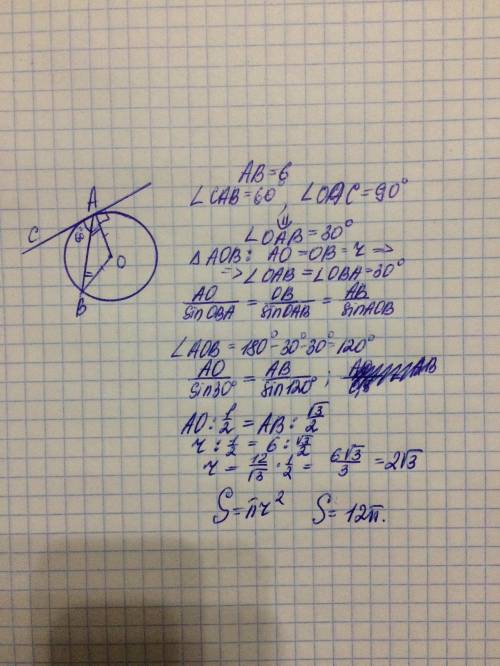 AB=6
∠CAB=60°, ∠OAC=90°
⇓
∠OAB=30°
△AOB: AO=OB=r =>
=>∠OAB=∠OBA=30°
AO/sinOBA = OB/sinOAB = AB/sinAOB
∠AOB=180°-30°-30°=120°
AO/sin30° = AB/sin120° ;
AO:1/2 = AB:√3/2
r:1/2 = 6:√3/2
r = 12/√3 · 1/2 = 6√3/3 = 2√3
S=πr² S=12π.
A
C
60°
O
B